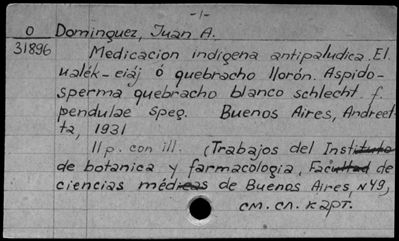 -1-
O Dominguez, Juan A.
31896
Medicacion indigena antipaludica. El
ualék-eiáj ó quebracho llorón. Aspido-
sperma quebracho blanco schlecht. f.
pendulae Speg. Buenos Aires, Andreet-
ta, 1931
11p. con ill. (Trabajos del Instituto
de botanica y farmacologia, Facultad de
ciencias médicas de Buenos Aires, N49,
см. сл. карт.